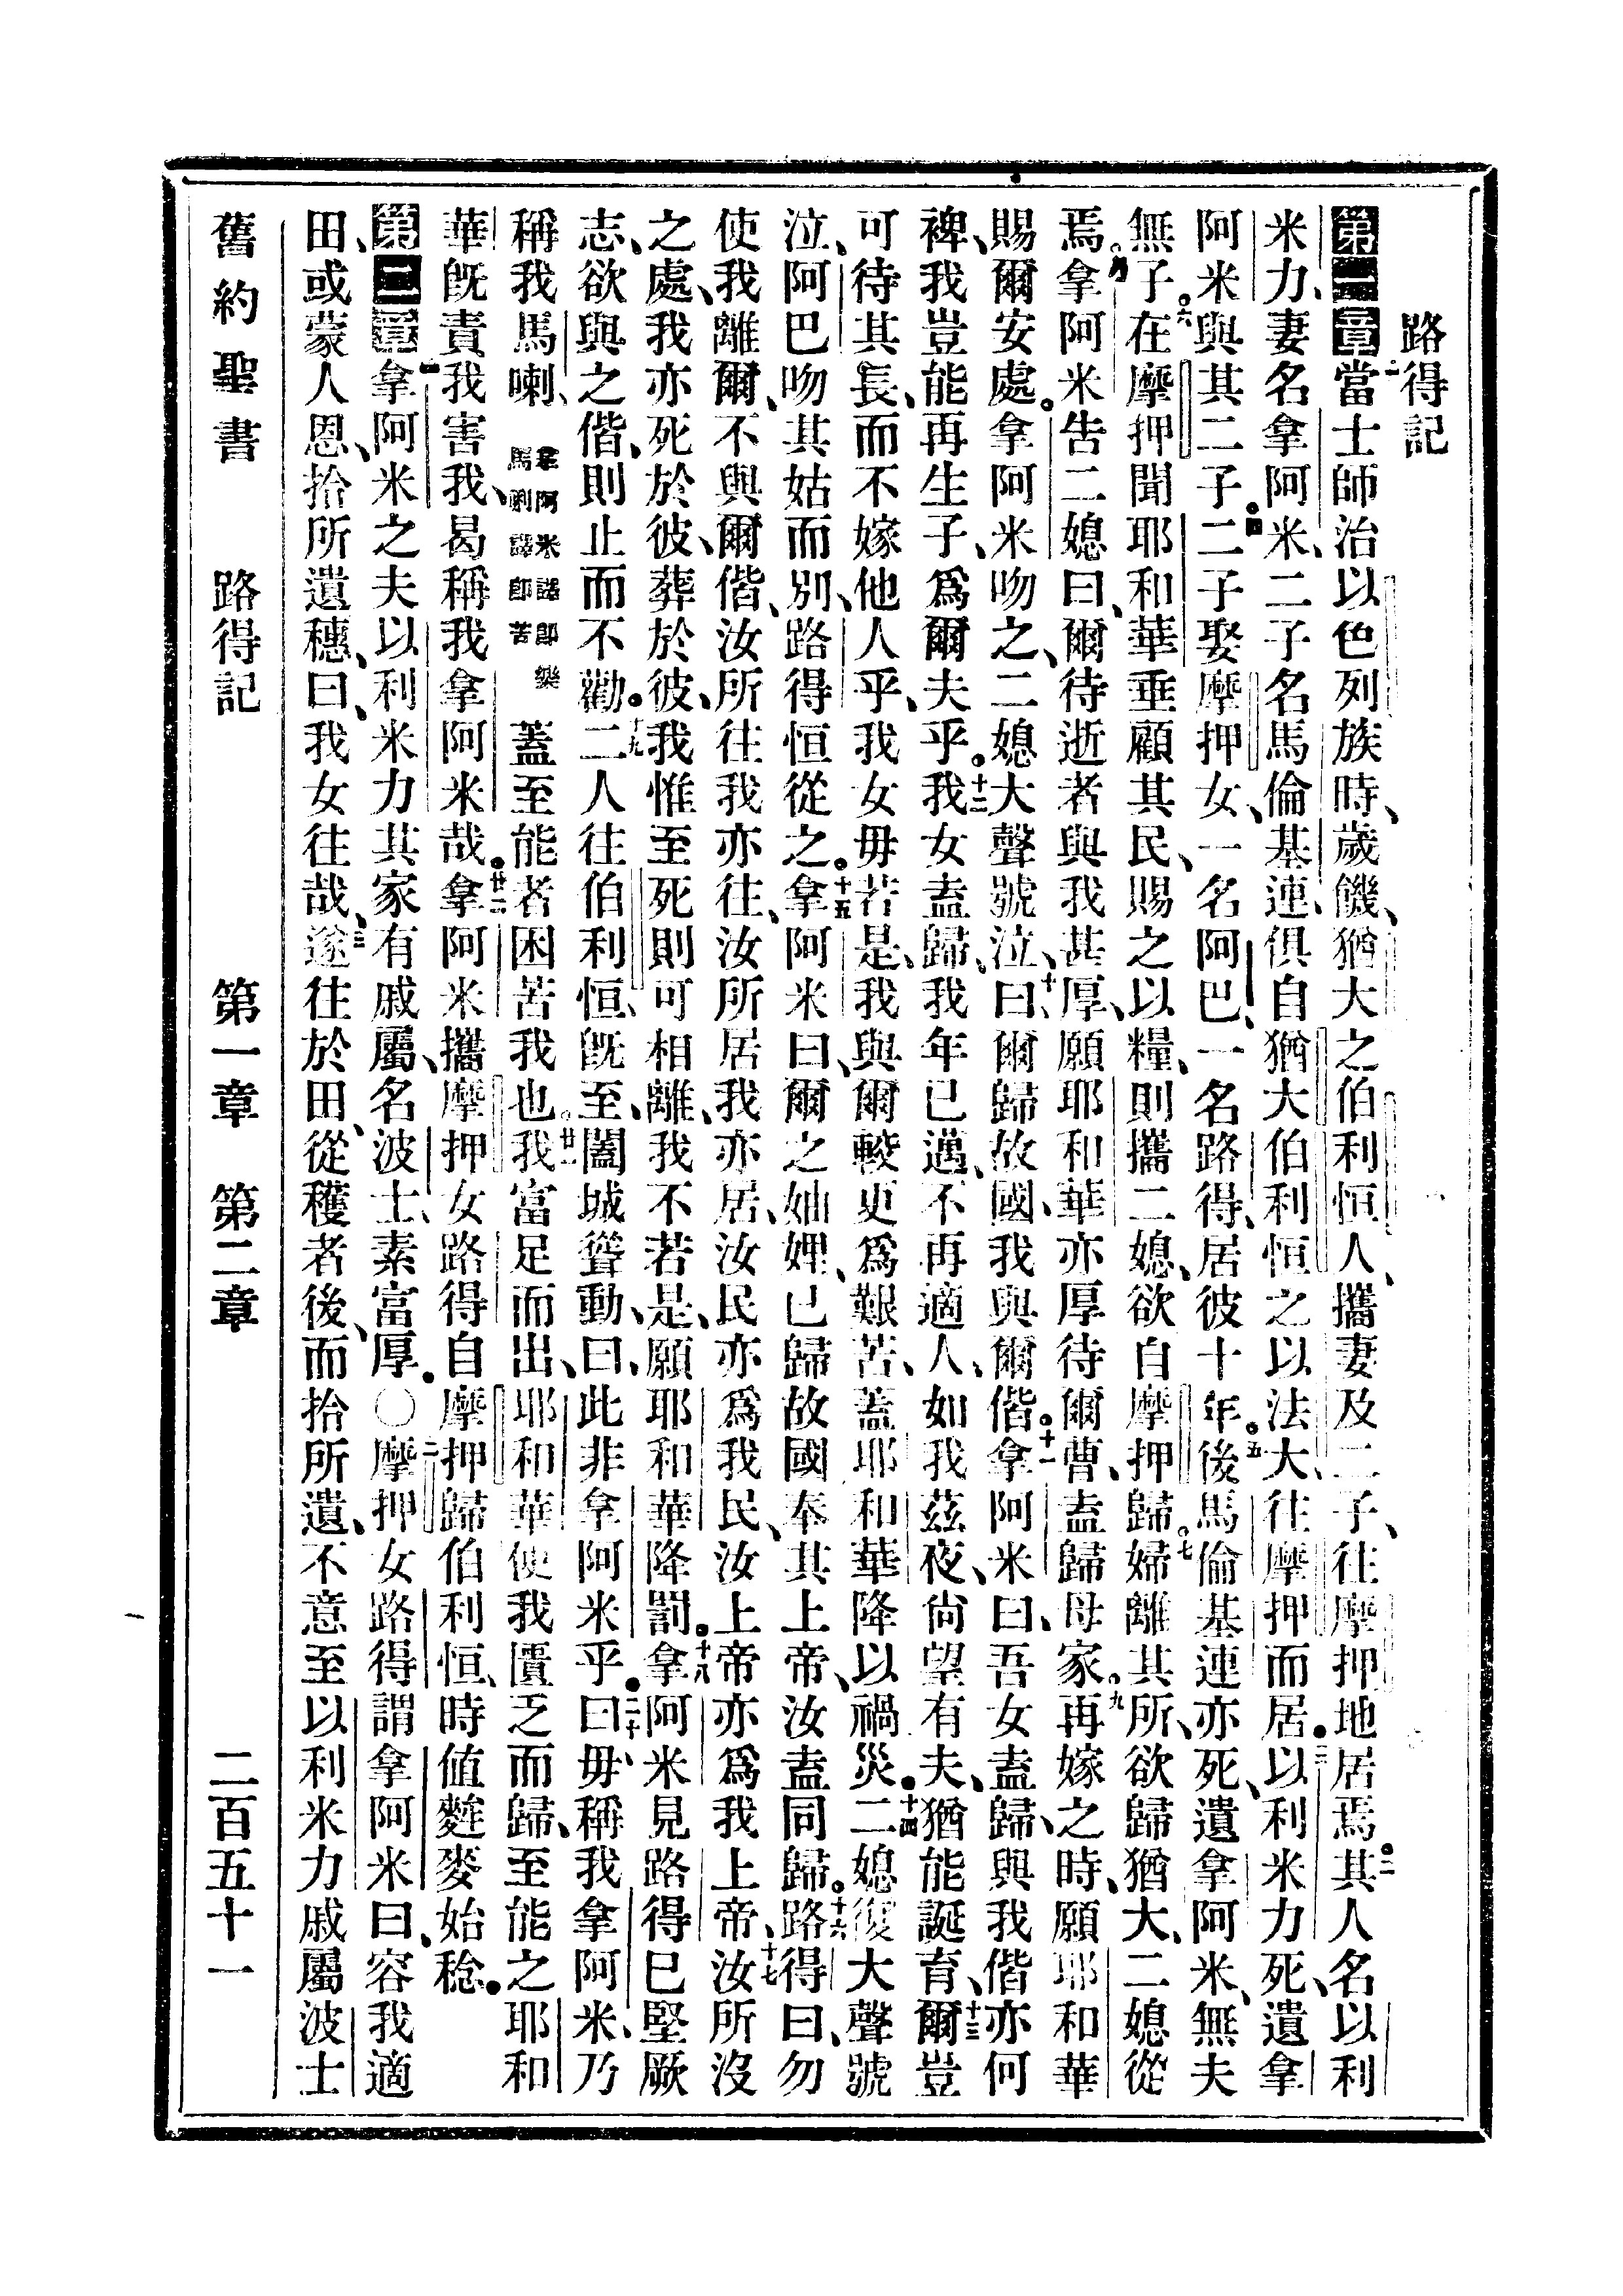 路得記
第一章一當士師治以色列族時、歲饑、猶大之伯利恒人、攜妻及二子、往摩押地居焉。二其人名以利
米力、妻名拿阿米、二子名馬倫基連、俱自猶大伯利恒之以法大、往摩押而居。三以利米力死、遺拿
阿米與其二子。四二子娶摩押女、一名阿巴、一名路得、居彼十年。五後馬倫基連亦死、遺拿阿米、無夫
無子。六在摩押聞耶和華垂顧其民、賜之以糧、則攜二媳、欲自摩押歸。七婦離其所、欲歸猶大、二媳從
焉。八拿阿米告二媳曰、爾待逝者與我甚厚、願耶和華亦厚待爾曹、盍歸母家。九再嫁之時、願耶和華
賜爾安處。拿阿米吻之、二媳大聲號泣、十曰、爾歸故國、我與爾偕。十一拿阿米曰、吾女盍歸、與我偕亦何
裨、我豈能再生子、爲爾夫乎。十二我女盍歸、我年已邁、不再適人、如我茲夜、尙望有夫、猶能誕育、十三爾豈
可待其長、而不嫁他人乎、我女毋若是、我與爾較更爲艱苦、蓋耶和華降以禍災。十四二媳復大聲號
泣、阿巴吻其姑而別、路得恒從之。十五拿阿米曰、爾之妯娌、已歸故國、奉其上帝、汝盍同歸。十六路得曰、勿
使我離爾、不與爾偕、汝所往我亦往、汝所居我亦居、汝民亦爲我民、汝上帝亦爲我上帝、十七汝所沒
之處、我亦死於彼、葬於彼、我惟至死則可相離、我不若是、願耶和華降罰。十八拿阿米見路得已堅厥
志、欲與之偕、則止而不勸。十九二人往伯利恒、旣至、闔城聳動、曰、此非拿阿米乎。二十曰、毋稱我拿阿米、乃
稱我馬喇、拿阿米譯卽樂馬喇譯卽苦蓋至能者困苦我也。廿一我富足而出、耶和華使我匱乏而歸、至能之耶和
華旣責我害我、曷稱我拿阿米哉。廿二拿阿米攜摩押女路得自摩押歸伯利恒、時值麰麥始稔。
第二章一拿阿米之夫以利米力、其家有戚屬、名波士、素富厚。〇二摩押女路得謂拿阿米曰、容我適
田、或蒙人恩、拾所遺穗、曰、我女往哉、三遂往於田、從穫者後、而拾所遺、不意至以利米力戚屬波士
舊約聖書 路得記 第一章 第二章 二百五十一